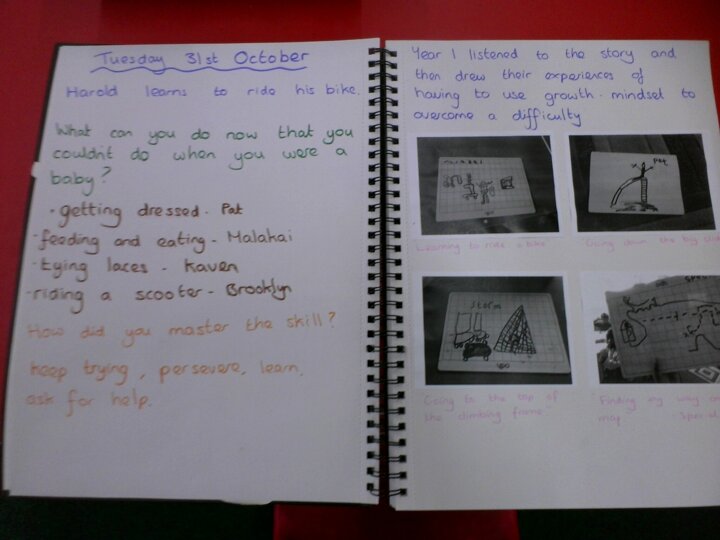 Tuesday 31st October
Harold learns to ride his bike.
What can you do now that you
couldn't do when you were a
baby?
· getting dressed - Pat
· feeding and eating - Malahai
· tying laces - Kaven
· riding a scooter - Brooklyn
How did you master the skill?
keep trying, persevere, learn,
ask for help.
Year 1 listened to the story and
then drew their experiences of
having to use growth-mindset to
overcome a difficulty
Pat
Learning to ride a bike
Going down the big slide
Storm
Going to the top of
the climbing frame
Finding my way on
map